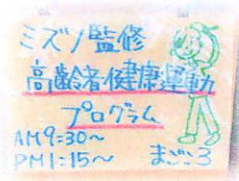 ミズノ監修
高齢者健康運動
プログラム
AM9:30～
PM1:15～ まごころ